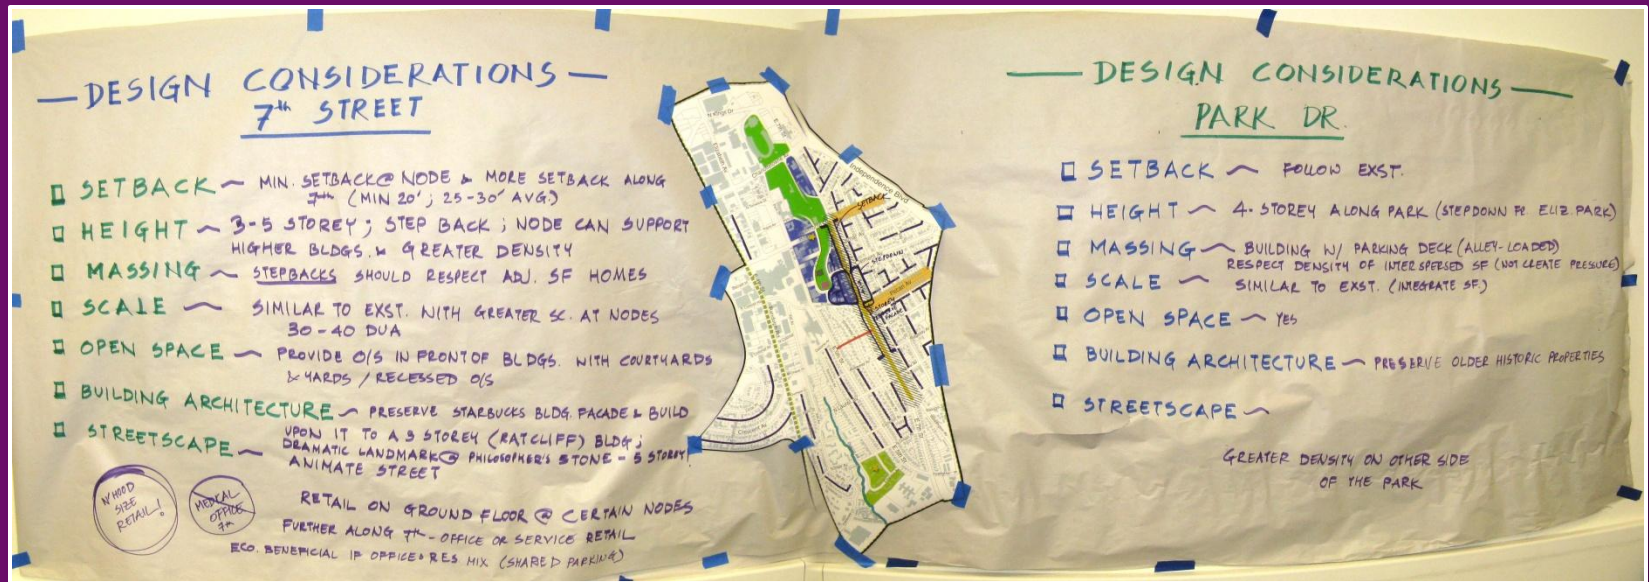 — DESIGN CONSIDERATIONS —
7th STREET
SETBACK ~ MIN. SETBACK @ NODE & MORE SETBACK ALONG
7th (MIN 20'; 25-30' AVG.)
HEIGHT ~ 3-5 STOREY; STEP BACK; NODE CAN SUPPORT
HIGHER BLDGS. & GREATER DENSITY
MASSING ~ STEPBACKS SHOULD RESPECT ADJ. SF HOMES
SCALE ~ SIMILAR TO EXST. WITH GREATER SC. AT NODES
30-40 DUA
OPEN SPACE ~ PROVIDE O/S IN FRONT OF BLDGS. WITH COURTYARDS
& YARDS / RECESSED O/S
BUILDING ARCHITECTURE ~ PRESERVE STARBUCKS BLDG. FACADE & BUILD
UPON IT TO A 3 STOREY (RATCLIFF) BLDG;
STREETSCAPE ~ DRAMATIC LANDMARK @ PHILOSOPHER'S STONE - 5 STOREY
ANIMATE STREET
N'HOOD
SIZE
RETAIL!
MEDICAL
OFFICE
7th
RETAIL ON GROUND FLOOR @ CERTAIN NODES
FURTHER ALONG 7th - OFFICE OR SERVICE RETAIL
ECO. BENEFICIAL IF OFFICE & RES MIX (SHARED PARKING)
N Kings Dr
Independence Blvd
SETBACK
STEPDOWN
Pecan Av
Crescent Av
— DESIGN CONSIDERATIONS —
PARK DR.
SETBACK ~ FOLLOW EXST.
HEIGHT ~ 4-STOREY ALONG PARK (STEPDOWN Fr. ELIZ. PARK)
MASSING ~ BUILDING W/ PARKING DECK (ALLEY-LOADED)
RESPECT DENSITY OF INTERSPERSED SF (NOT CREATE PRESSURE)
SCALE ~ SIMILAR TO EXST. (INTEGRATE SF.)
OPEN SPACE ~ YES
BUILDING ARCHITECTURE ~ PRESERVE OLDER HISTORIC PROPERTIES
STREETSCAPE ~
GREATER DENSITY ON OTHER SIDE
OF THE PARK